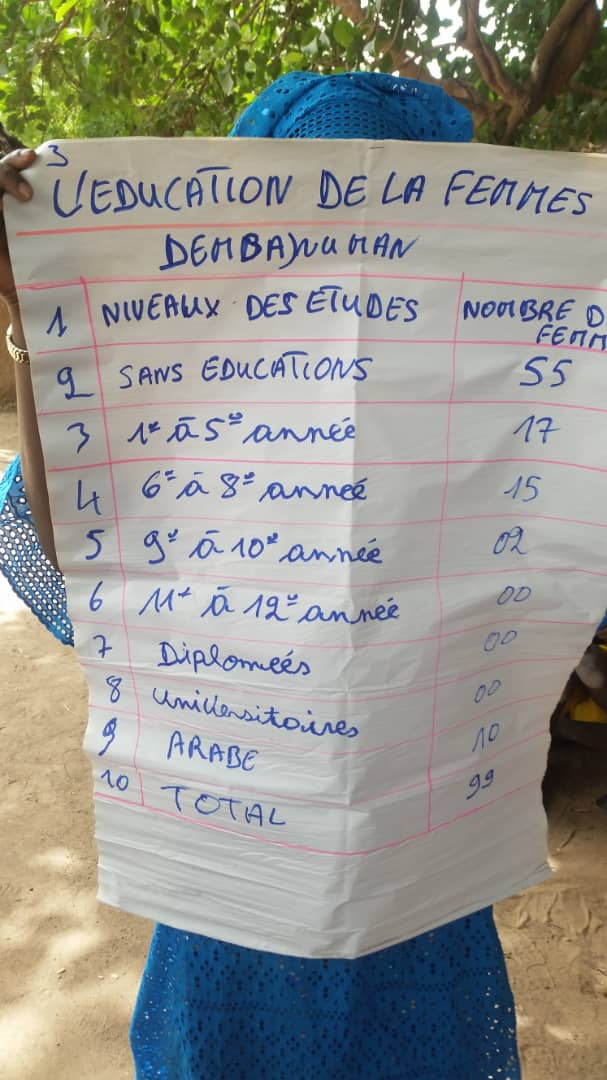 3
L'EDUCATION DE LA FEMMES
DEMBAYUMAN
1 NIVEAUX DES ETUDES NOMBRE D
FEMM
2 SANS EDUCATIONS 55
3 1e à 5e année 17
4 6e à 8e anneé 15
5 9e à 10e année 02
6 11e à 12e année 00
7 Diplomeés 00
8 Universitoires 00
9 ARABE 10
10 TOTAL 99